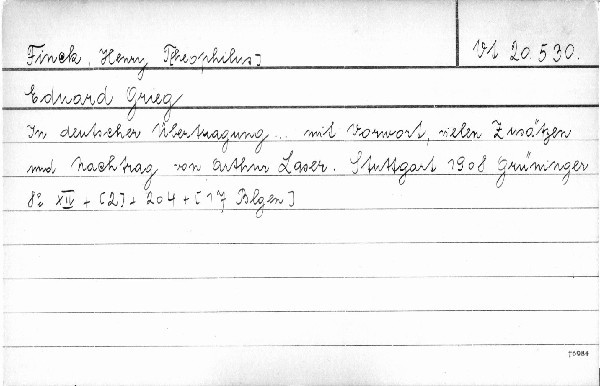 Finck, Henry T[heophilus] Vl 20.530.
Eduard Grieg
In deutscher Übertragung... mit Vorwort, vielen Zusätzen
und Nachtrag von Arthur Laser. Stuttgart 1908 Grüninger
8° XIV + [2] + 204 + [17 Blgen]
†5984